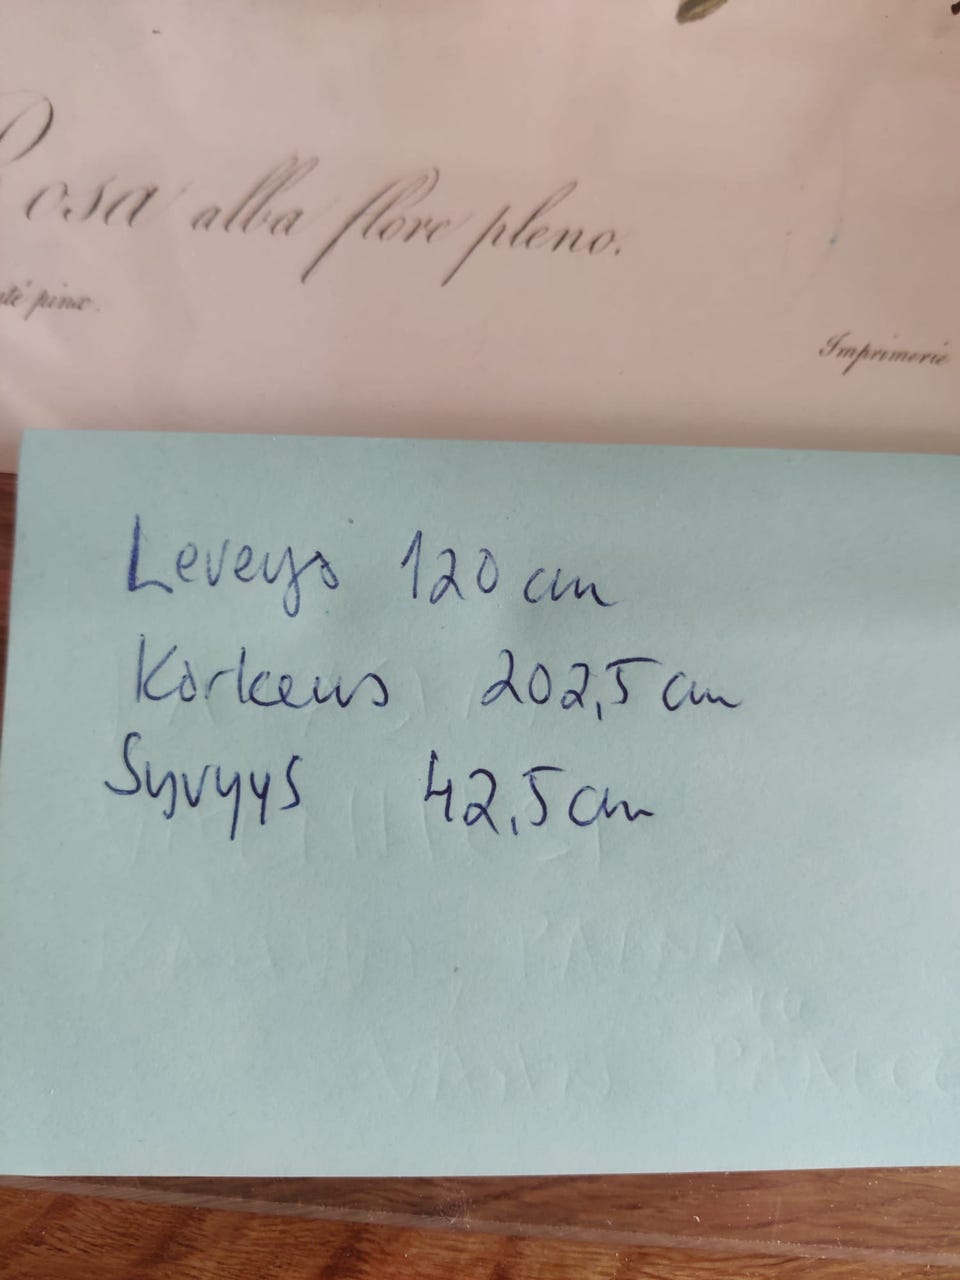 Rosa alba flore pleno.
pinx.
Imprimerie
Leveys 120 cm
Korkeus 202,5 cm
Syvyys 42,5 cm